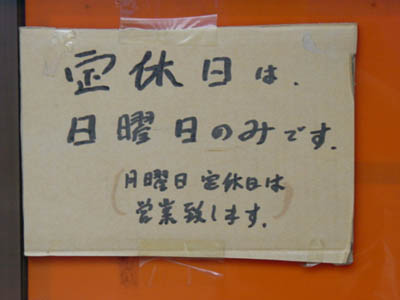 定休日は.
日曜日のみです.
(月曜日 定休日は
営業致します.)